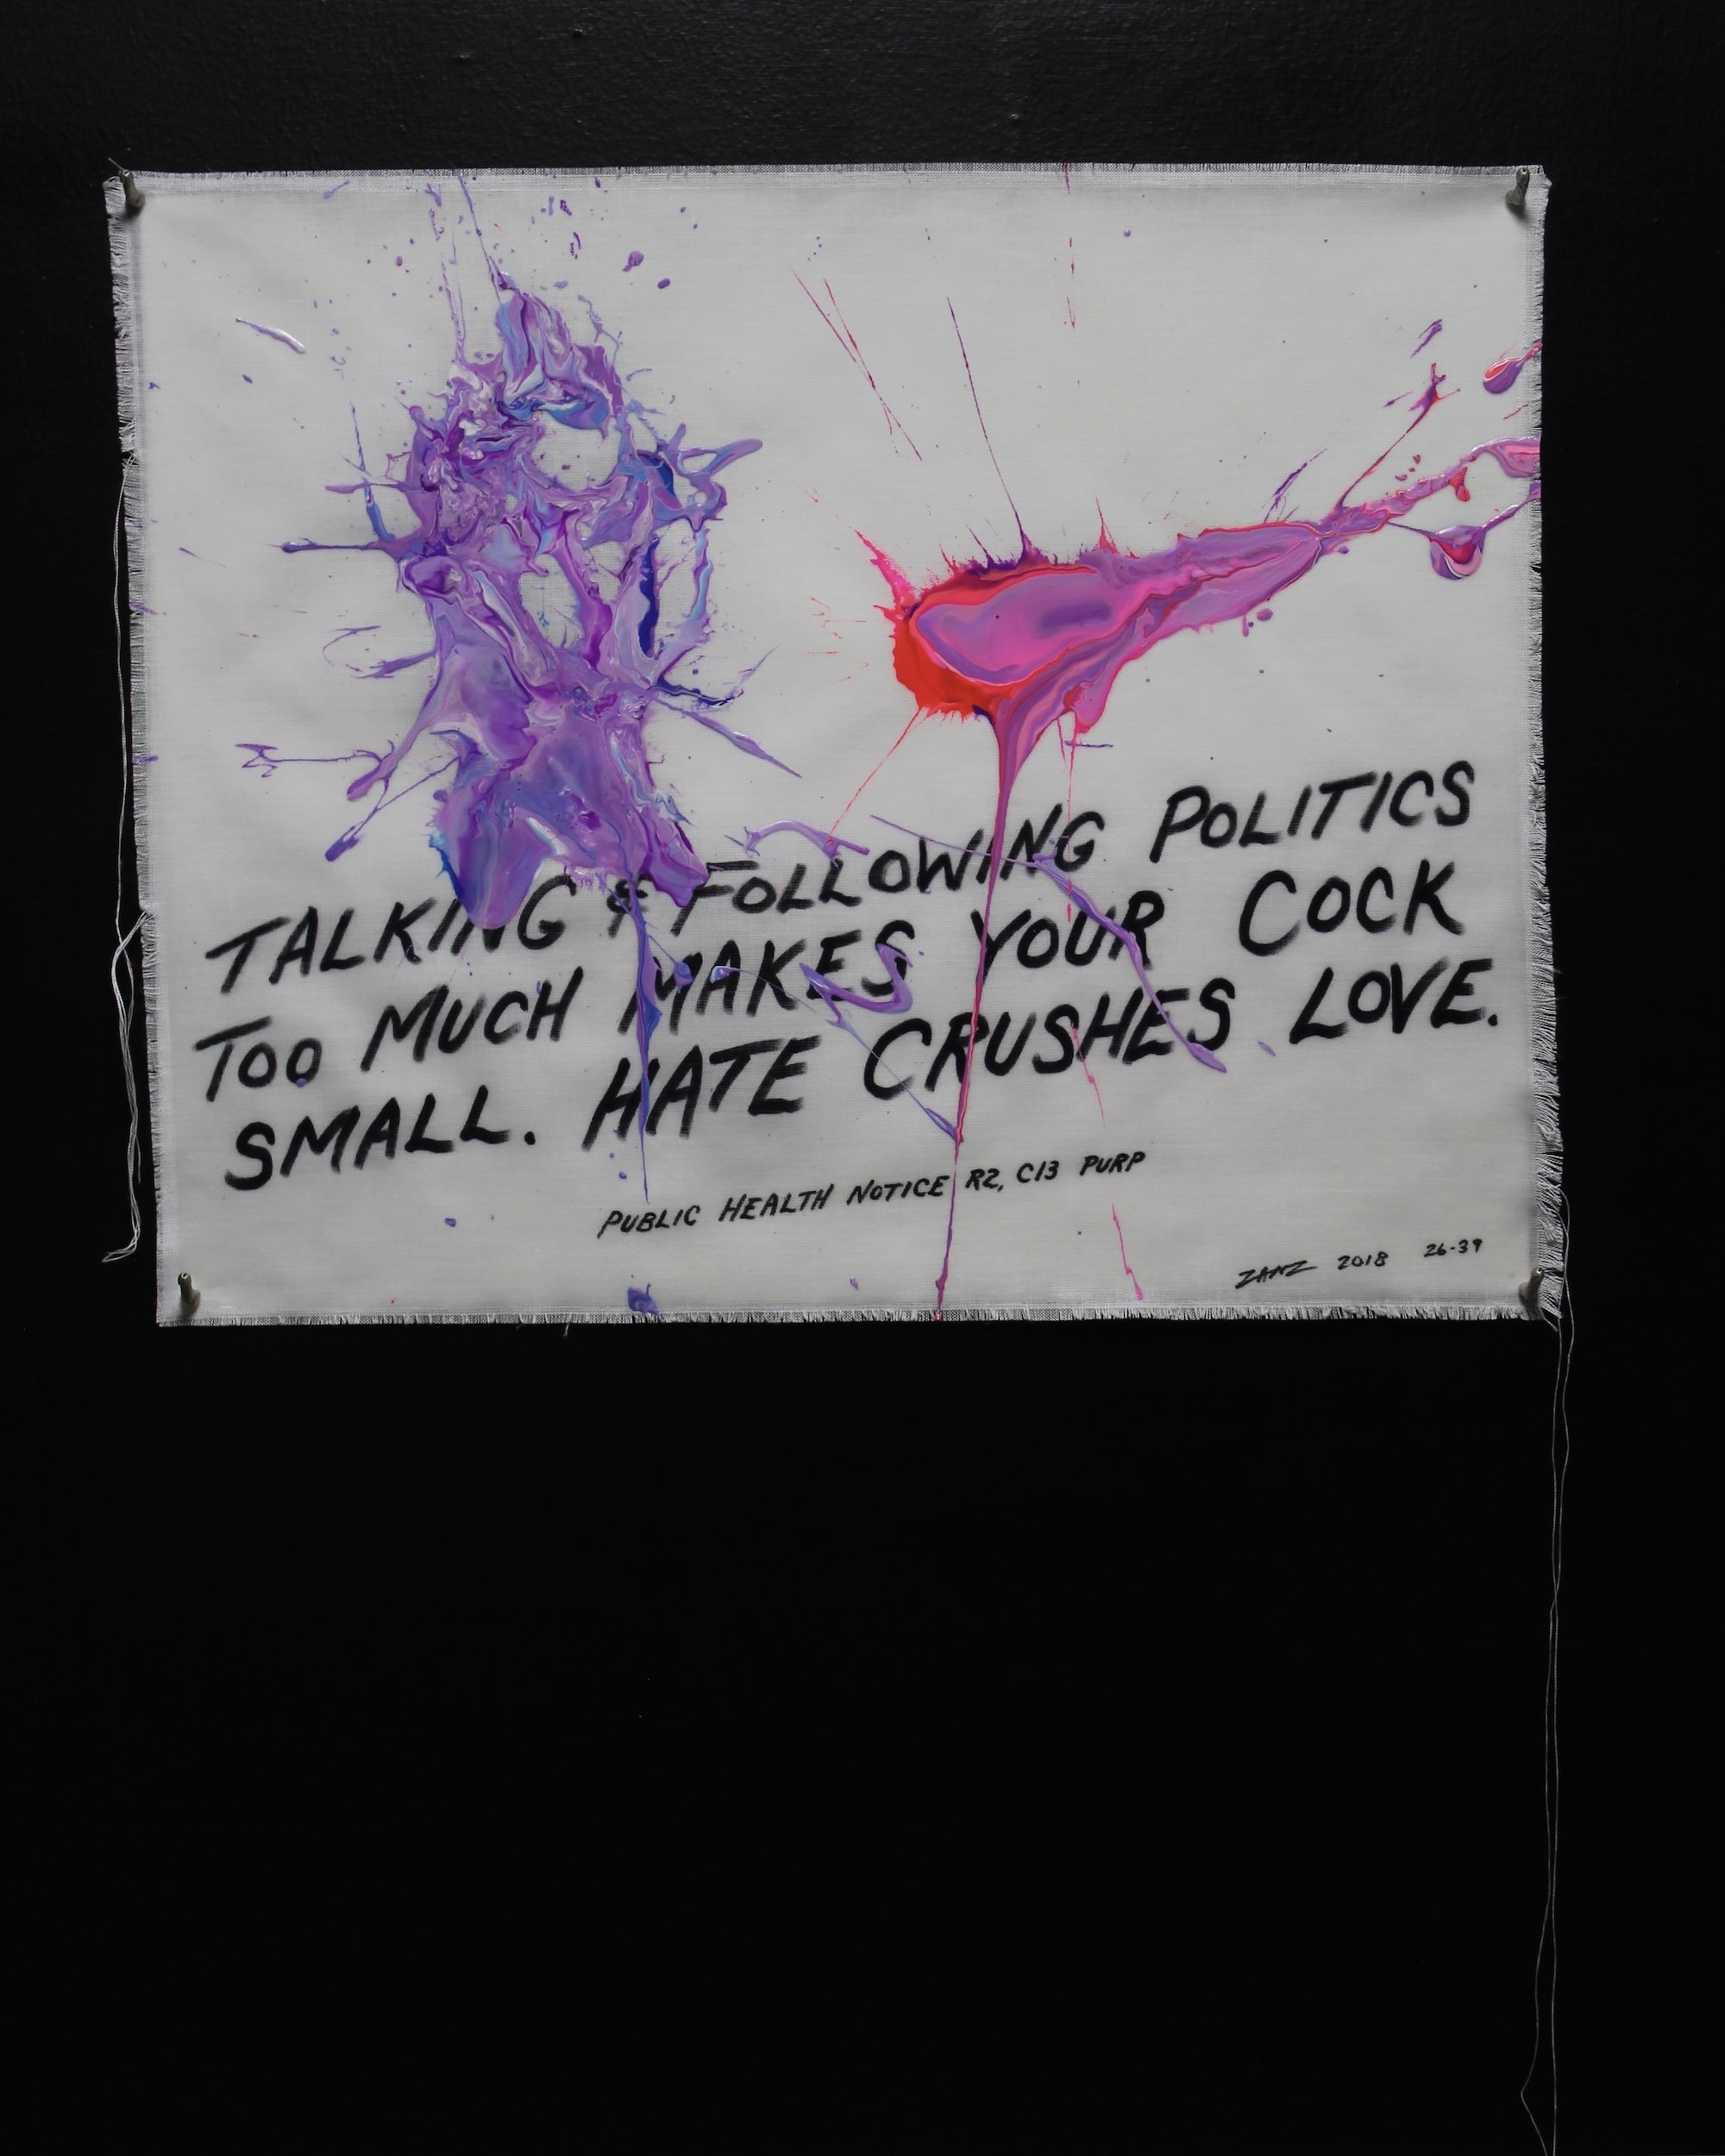 TALKING & FOLLOWING POLITICS
TOO MUCH MAKES YOUR COCK
SMALL. HATE CRUSHES LOVE.
PUBLIC HEALTH NOTICE R2, C13 PURP
ZANZ 2018 26-39